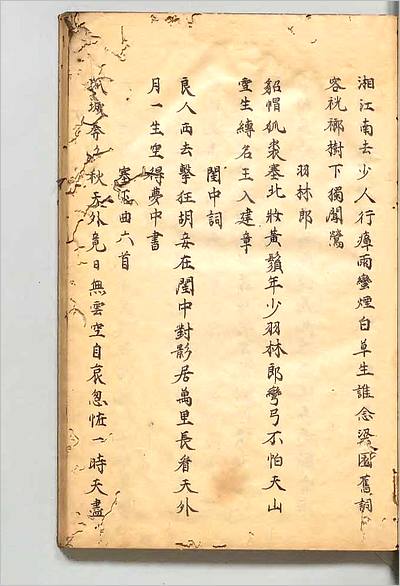 湘江南去少人行瘴雨蠻煙白草生誰念梁園舊詞
客桄榔樹下獨聞鶯
羽林郎
貂帽狐裘塞北妝黃鬚年少羽林郎彎弓不怕天山
雪生縛名王入建章
閨中詞
良人西去擊狂胡妾在閨中對影居萬里長看天外
月一生空得夢中書
塞上曲六首
城秋天外竟日無雲空自哀忽怪一時天盡